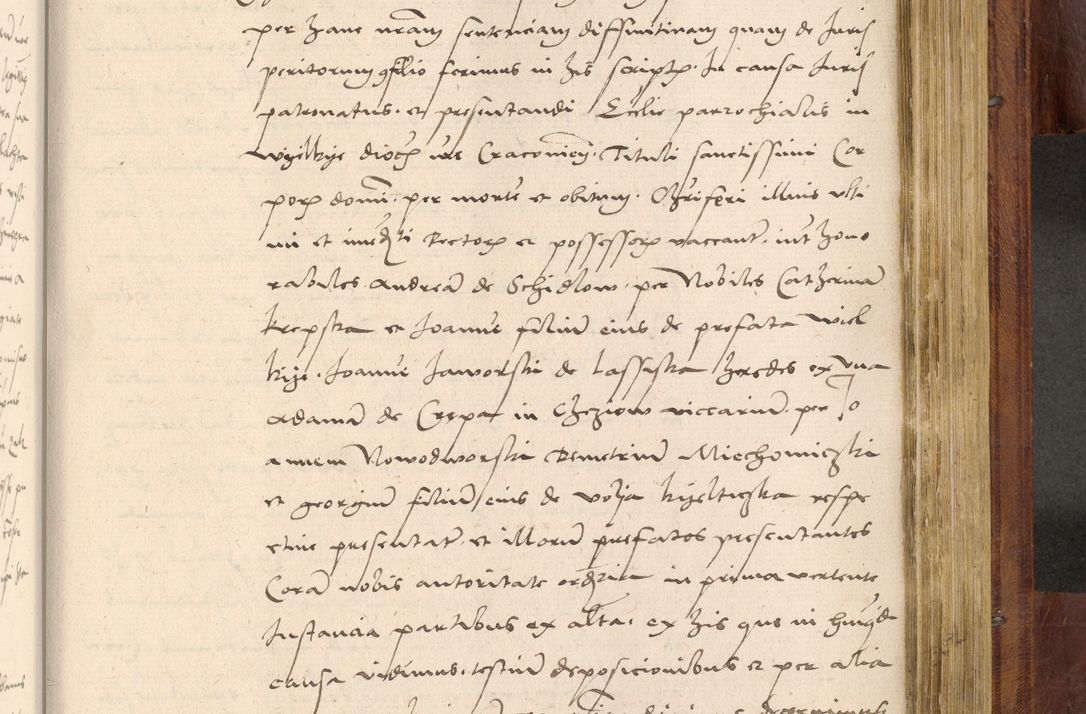 per hanc nram sentenciam diffinitivam quam de Juris
peritorum consilio ferimus in his scriptis In causa Juris
patronatus et presentandi Ecclie parrochialis in
Wyelkye dioc nre Cracovien Tituli sanctissimi Cor
poris domini per morte et obitum illius ulti
mi et immediati Rectoris et possessoris vaccant int hono
rabiles Andream de Schidlow per Nobiles Catherinam
krepska et Joanne filium eius de prefata wiel
kije Joanne Jaworski de lassiska heredes ex una
Adamum de Czepa in Chezow viccarium per Jo
annem Nowodworski Demetrium Miechowiczki
et georgium filium eius de volja kijelticzka respe
ctive presentat et illorum prefatos presentantes
Coram nobis autoritate ordinaria in prima vertente
Instancia partibus ex altera ex his que in huiusmodi
causa vidimus testium deposicionibus et per alia